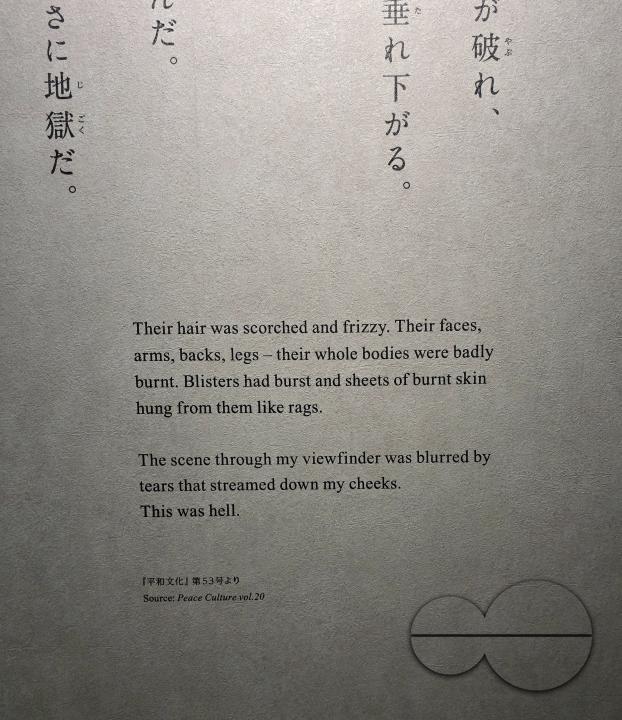 が破れ、
垂れ下がる。
んだ。
さに地獄だ。
Their hair was scorched and frizzy. Their faces,
arms, backs, legs – their whole bodies were badly
burnt. Blisters had burst and sheets of burnt skin
hung from them like rags.
The scene through my viewfinder was blurred by
tears that streamed down my cheeks.
This was hell.
『平和文化』第53号より
Source: Peace Culture vol.20